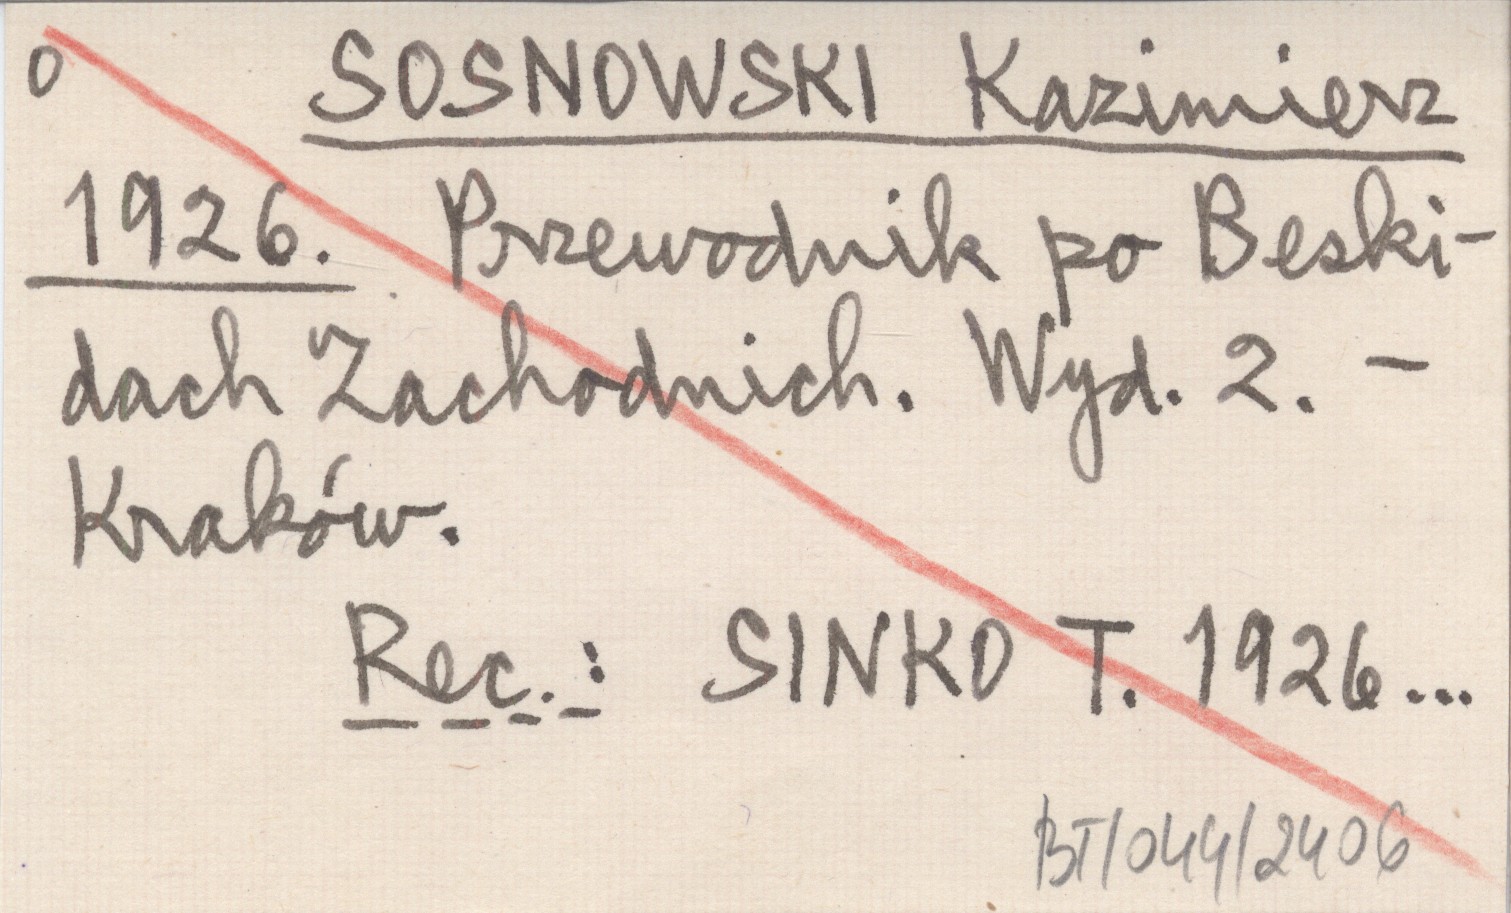 0 SOSNOWSKI Kazimierz
1926. Przewodnik po Beski-
dach Zachodnich. Wyd. 2. -
Kraków.
Rec.: SINKO T. 1926...
BT/044/2406